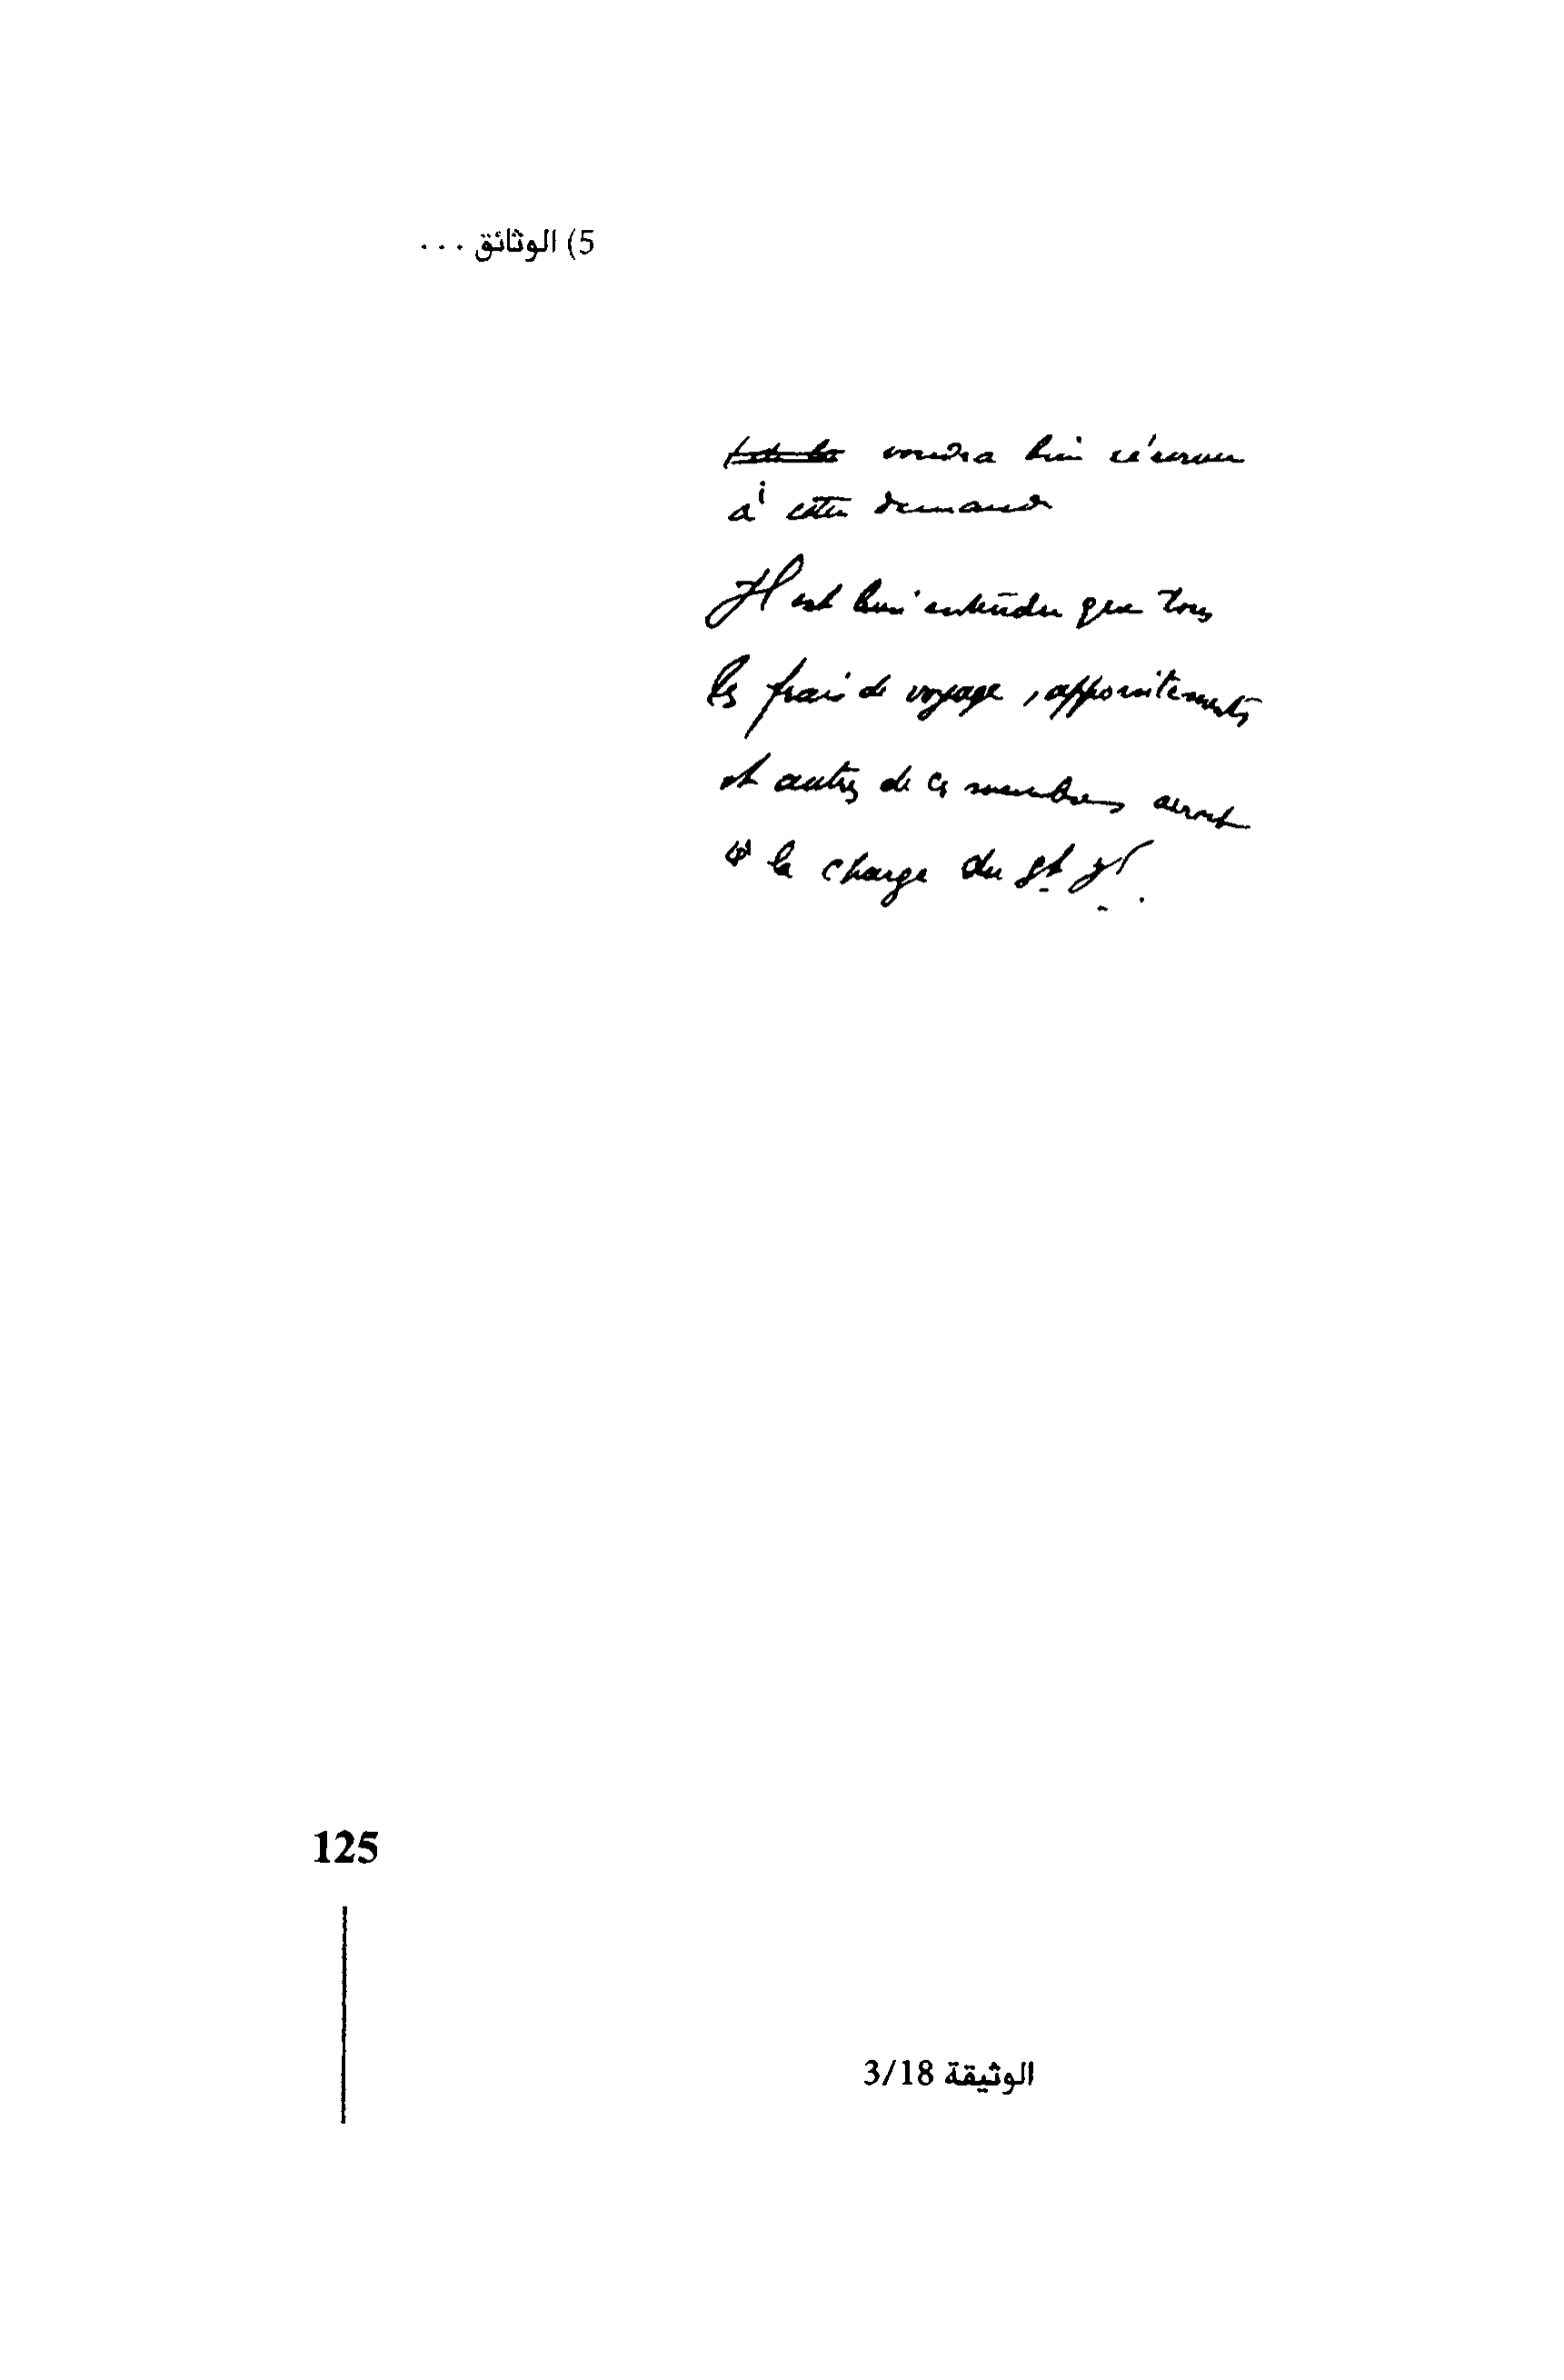 5) الوثائق . . .
voudra bien réserver
à cette demande
Il est bien entendu que tous
les frais de voyage, appointements
et autres de ces membres seront
à la charge du
125
الوثيقة 3/18